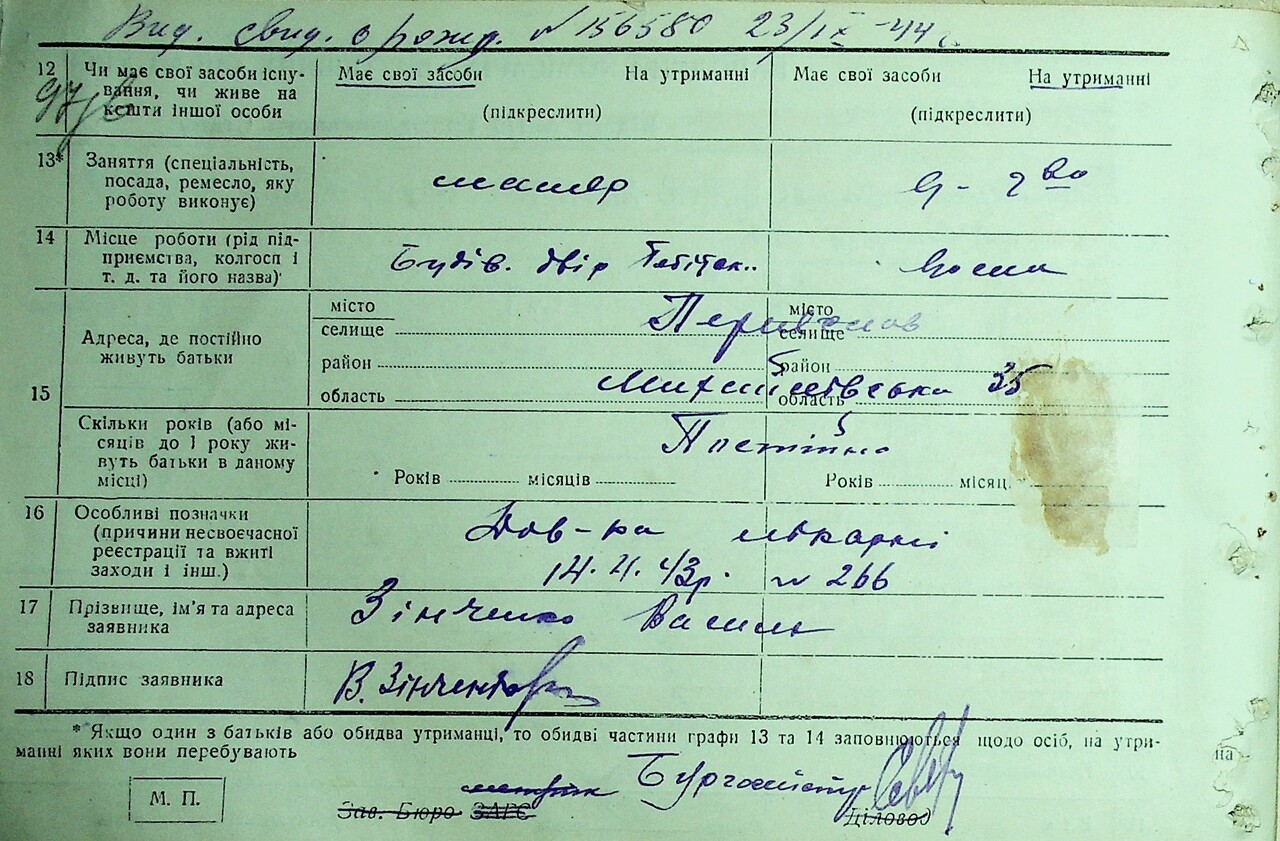 Вид. свид. о рожд. № 156580 23/IX-44 г.
12 Чи має свої засоби існування, чи живе на кошти іншої особи
Має свої засоби На утриманні
(підкреслити)
Має свої засоби На утриманні
(підкреслити)
13* Заняття (спеціальність, посада, ремесло, яку роботу виконує)
маляр
14 Місце роботи (рід підприємства, колгосп і т. д. та його назва)
Будів. двір
15 Адреса, де постійно живуть батьки
місто
селище
район
область
місто
селище
район
область
35
Скільки років (або місяців до 1 року живуть батьки в даному місці)
Постійно
Років місяців
Років місяц.
16 Особливі позначки (причини несвоєчасної реєстрації та вжиті заходи і інш.)
Дов-ка лікарні
43р. № 266
17 Прізвище, ім’я та адреса заявника
Зінченко Василь
18 Підпис заявника
В. Зінченко
* Якщо один з батьків або обидва утриманці, то обидві частини графи 13 та 14 заповнюються щодо осіб, на утри-
манні яких вони перебувають
на
М. П.
Бургомістр
Зав. Бюро ЗАГС
Діловод